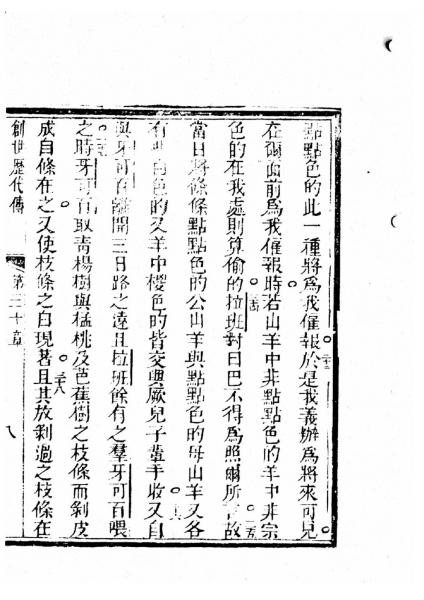 點點色的此一種將為我僱報於是我義辦為將來可見
在爾面前為我僱報時若山羊中非點點色的羊中非宗
色的在我處則算偷的拉班對曰巴不得為照爾所言故
當日將條條點點色的公山羊與點點色的母山羊又各
有些白色的又羊中椶色的皆交與厥兒子輩手收又自
與牙可百離開三日路之遠且拉班餘有之羣牙可百喂
之時牙可百取青楊樹與榛桃及芭蕉樹之枝條而剝皮
成白條在之又使枝條之白現著且其放剝過之枝條在
創世歷代傳 第三十章 八